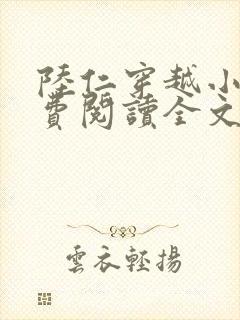 陸仁穿越小
費閱讀全文
雲衣輕揚